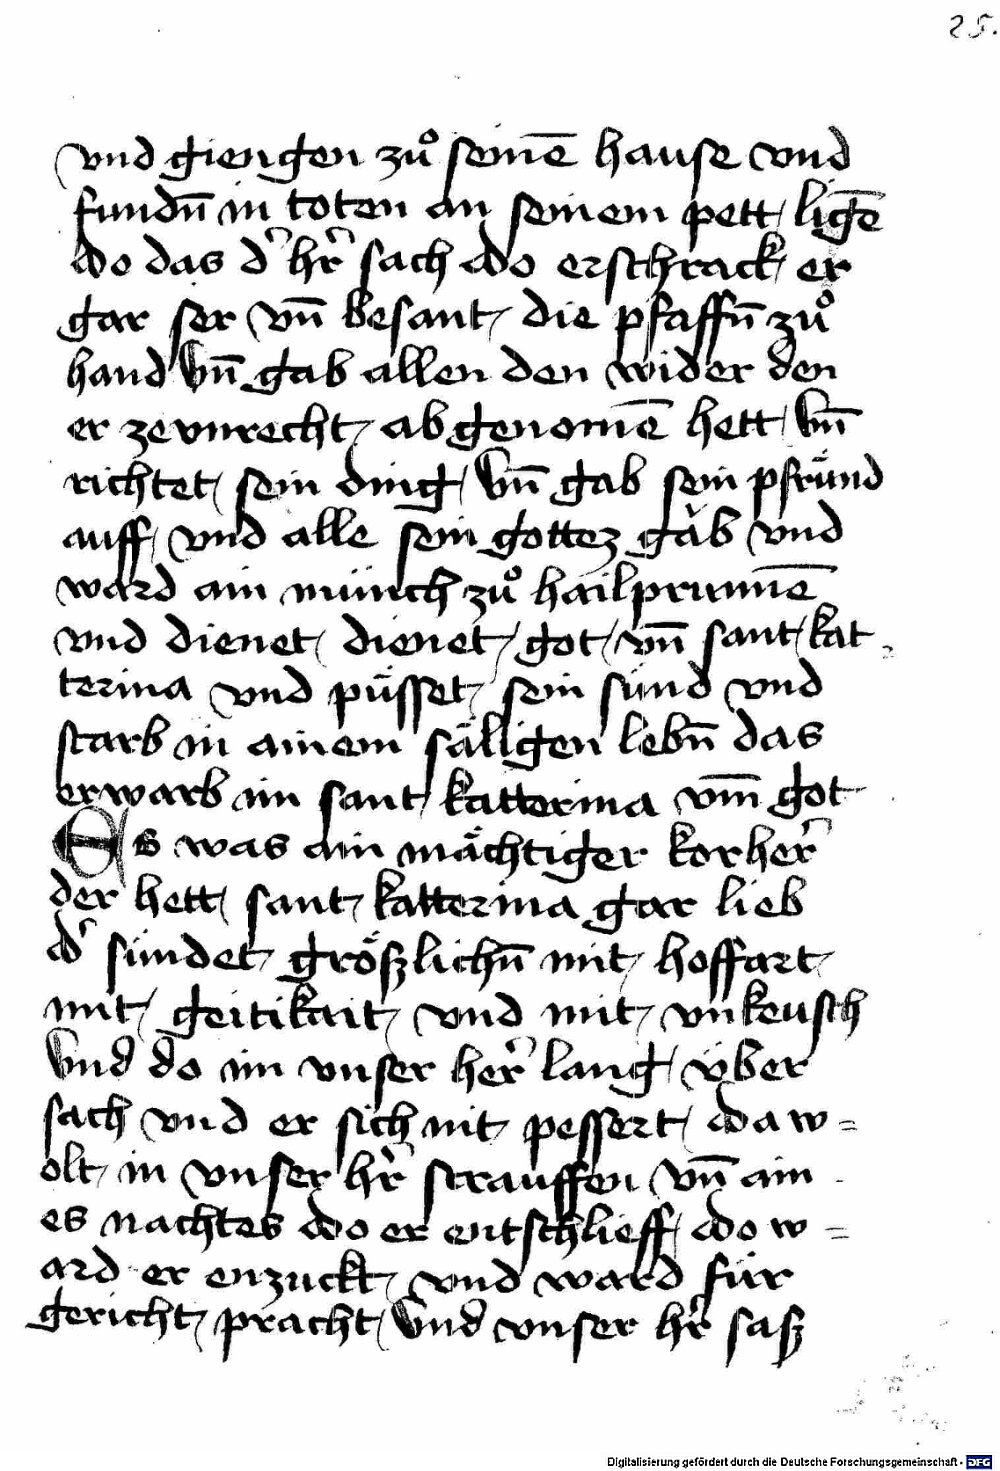 25.
vnd giengen zuͦ seinē hause vnd
fundn̄ in toten an seinem pett ligē
do das dʾ hr̄ sach do erschrack er
gar ser vn̄ besant die pfaffn̄ zuͦ
hand vn̄ gab allen den wider den
er zevnrecht abgenomē hett vn̄
richtet sein ding vn̄ gab sein pfründ
auff vnd alle sein gottez gab vnd
ward ain münch zuͦ hailprunnē
vnd dienet dienet got vn̄ sant kat
terina vnd püsset sein sünd vnd
starb in ainem sälligen lebn̄ das
erwarb im sant katterina vm̄ got
Es was ain mächtiger korherʾ
der hett sant katterina gar lieb
dʾ sündet größlichn̄ mit hoffart
mit geitikait vnd mit vnkeusch
Vnd do im vnser herʾ lang über
sach vnd er sich nit pessert da w=
olt in vnser hr̄ strauffen vn̄ ain
es nachtes do er entschlieff do w=
ard er enzuckt vnd ward für
gericht pracht vnd vnser hr̄ saß
Digitalisierung gefördert durch die Deutsche Forschungsgemeinschaft - DFG